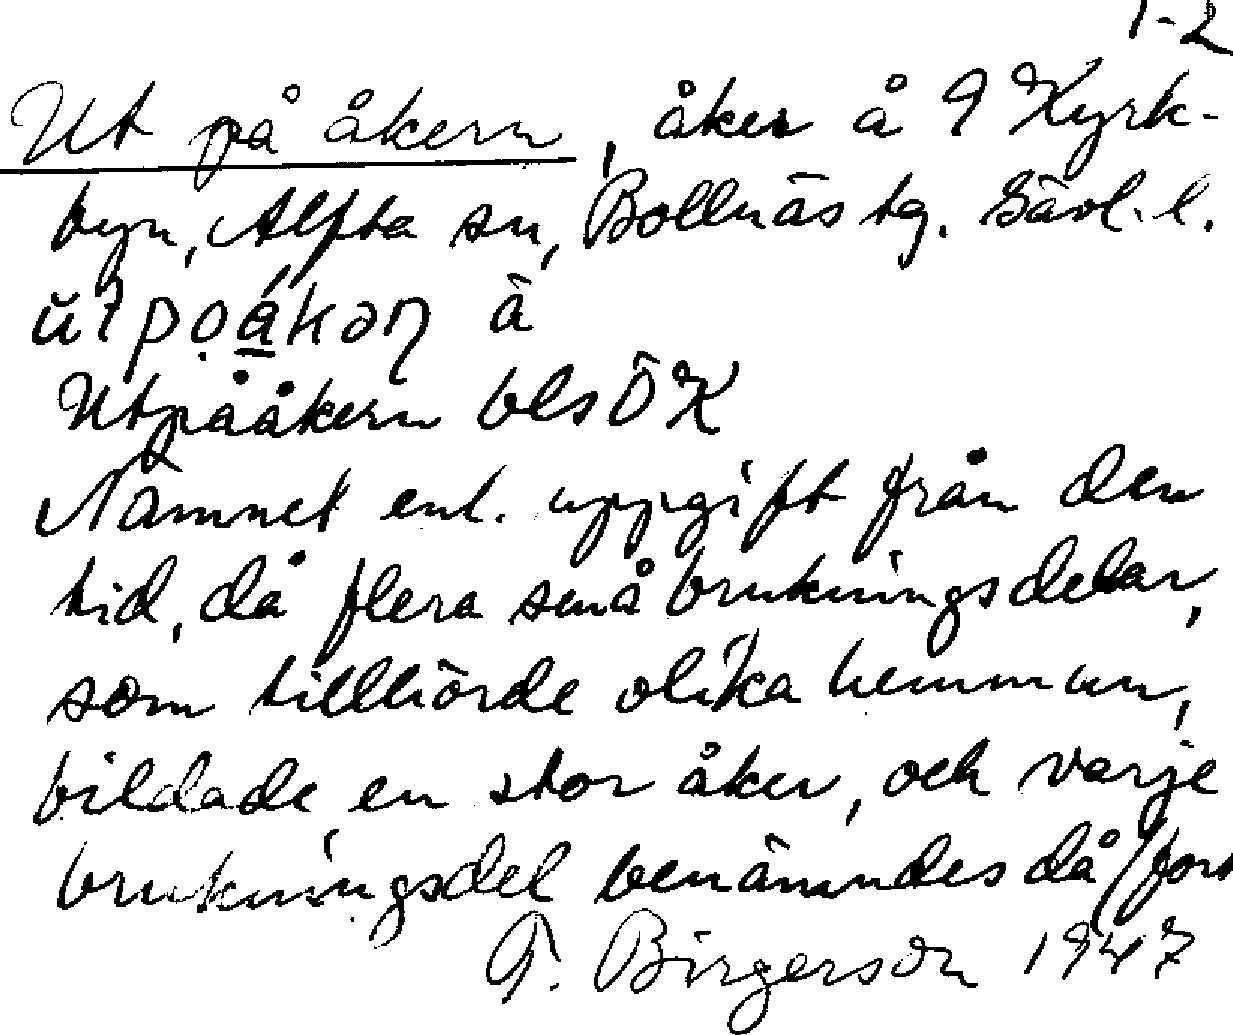 1-2
Ut på åkern, åker å 9 Kyrk-
byn, Alfta sn, Bollnäs tg. Gävl. l.
ŭtpọákəɳ ä
Utpååkern bls ÖK
Namnet enl. uppgift från den
tid, då flera små brukningsdelar,
som tillhörde olika hemman,
bildade en stor åker, och varje
brukningsdel benämndes då (fors
T. Birgerson 1947